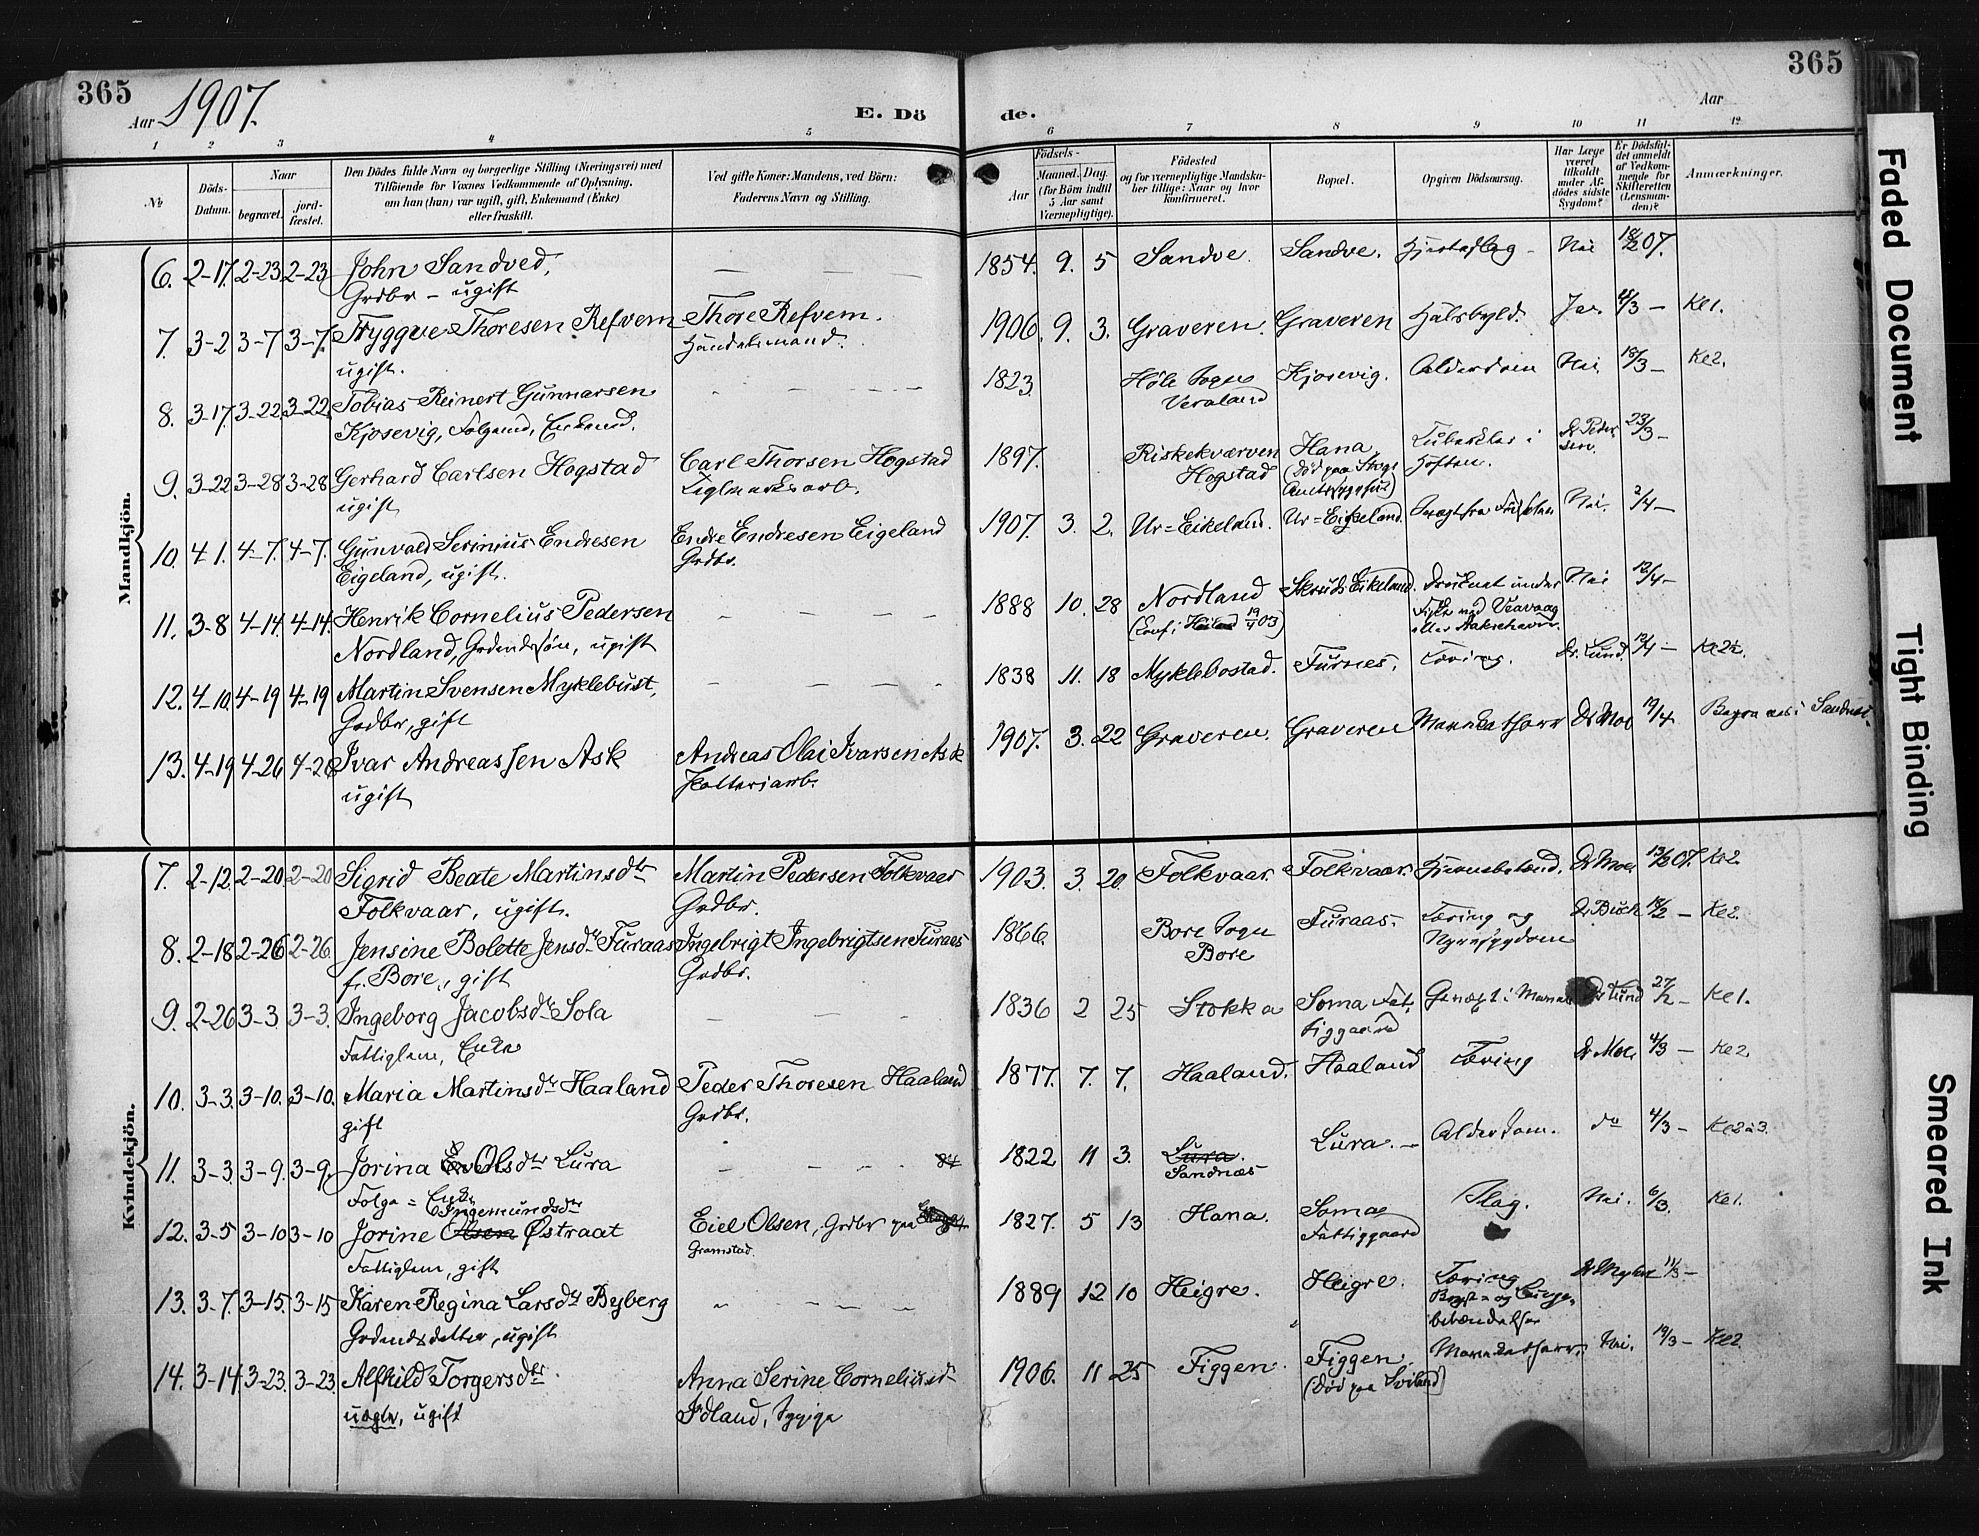 365
Aar 1907.
E. Dö
de.
Aar
365
1 2 3 4 5 6 7 8 9 10 11 12
№
Döds-Datum.
Naar
begravet.
jord-fæstet.
Den Dödes fulde Navn og borgerlige Stilling (Næringsvei) med
Tilföiende for Voxnes Vedkommende af Oplysning,
om han (hun) var ugift, gift, Enkemand (Enke)
eller fraskilt.
Ved gifte Koner: Mandens, ved Börn:
Faderens Navn og Stilling.
Födsels-
Aar
Maaned. Dag.
(for Börn indtil
5 Aar samt
Værnepligtige).
Födested
og for værnepligtige Mandska-
ber tillige: Naar og hvor
konfirmeret.
Bopæl.
Opgiven Dödsaarsag.
Har Læge
været
tilkaldt
under Af-
dödes sidste
Sygdom?
Er Dödsfal-
det anmeldt
af Vedkom-
mende for
Skifteretten
(Lensman-
den)?
Anmærkninger.
Mandkjön.
6. 2-17. 2-23. 2-23 John Sandved, — — — 1854. 9. 5 Sandve. Sandve. Nei 18/2 07.
Grdbr - ugift
7. 3-2 3-7 3-7. Tryggve Thoresen Refvem Thore Refvem. 1906. 9. 3. Graveren. Graveren Ja. /3 — Kl1.
ugift. Handelsmand.
8. 3-17. 3-22 3-22. Tobias Reinert Gunnarsen 1823. Höle Sogn Kjosevig. Alderdom Nei 18/3 — Kl2.
Kjosevig, Folgemd, Enkemd.
9. 3-22 3-28 3-28 Gerhard Carlsen Hogstad Carl Thorsen Hogstad 1897. Riskekværven Hana Tuberkler i Dr Peder-sen. 23/3 —
ugift Teglverksarb. Hogstad (død paa Stvgr Amtssygehus) Hoften.
10. 4-1. 4-7. 4-7. Gunvald Serinius Endresen Endre Endresen Eigeland 1907. 3. 2. Ur=Eikeland. Ur=Eikeland. Nei. 2/4 —
Eigeland, ugift. Grdbr.
11. 3-8 4-14. 4-14. Henrik Cornelius Pedersen 1888 10. 28 Nordland Skruds Eikeland. Druknet under Nei 12/4 —
Nordland, Grdmdssøn, ugift (Conf. i Höiland 19/4 03) Fiske ved Veavaag
eller Aakrehavn.
12. 4-10. 4-19 4-19 Martin Svensen Myklebust, 1838 11. 18 Myklebostad. Furnes. Tæring. Dr. Lund. 12/4 —
Grdbr, gift
13. 4-19 4-26 4-26 Ivar Andreassen Ask Andreas Olai Ivarsen Ask 1907. 3. 22 Graveren. Graveren Dr Moe 19/4 Begraves i Sandnes.
ugift Potteriarb.
Kvindekjön.
7. 2-12. 2-20. 2-20 Sigrid Beate Martinsdtr Martin Pedersen Folkvaar 1903. 3. 20. Folkvaar. Folkvaar. Hjernebetænd. Dr Moe. 13/2 07. Kl2
Folkvaar, ugift. Grdbr.
8. 2-18 2-26 2-26. Jensine Bolette Jensdtr Furaas Ingebrigt Ingebrigtsen Furaas 1866. Bore Sogn Furaas. Tæring og — Kl2.
f. Bore, gift Grdbr. Bore Nyresygdom
9. 2-26 3-3. 3-3. Ingeborg Jacobsdtr Sola 1836 2 25 Stokka Soma Fat- Dr Lund 27/2 — Kl1.
Fattiglem, Enke tiggaard
10. 3-3. 3-10. 3-10. Maria Martinsdtr Haaland Peder Thoresen Haaland 1877. 7. 7. Haaland. Haaland Tæring Dr Moe. 4/3 — Kl2.
gift Grdbr.
11. 3-3. 3-9. 3-9. Jorina Olsdtr Lura 84 1822 11 3. Lura. Lura. — Alderdom. do 4/3 — Kl2à3.
Folge=Enke Sandnæs
Ingemundsdtr
12. 3-5 3-10 3-10 Jorine Olsen Østraat Eiel Olsen, Grdbr paa 1827. 5 13 Hana. Soma Slag. Nei. 6/3. Kl1.
Fattiglem, gift Gramstad. Fattiggaard
13. 3-7. 3-15. 3-15 Karen Regina Larsdtr Byberg 1889 12 10 Heigre. Heigre. Tæring 11/3 —
Grdmdsdatter, ugift Bryst= og Lunge-
betændelse
14. 3-14 3-23. 3-23. Alfhild Torgersdtr Anna Serine Corneliusdtr 1906. 11 25 Figgen. Figgen Nei. 19/3 — Kl2.
uægte, ugift Idland, (død paa Sviland)
Faded Document
Tight Binding
Smeared Ink